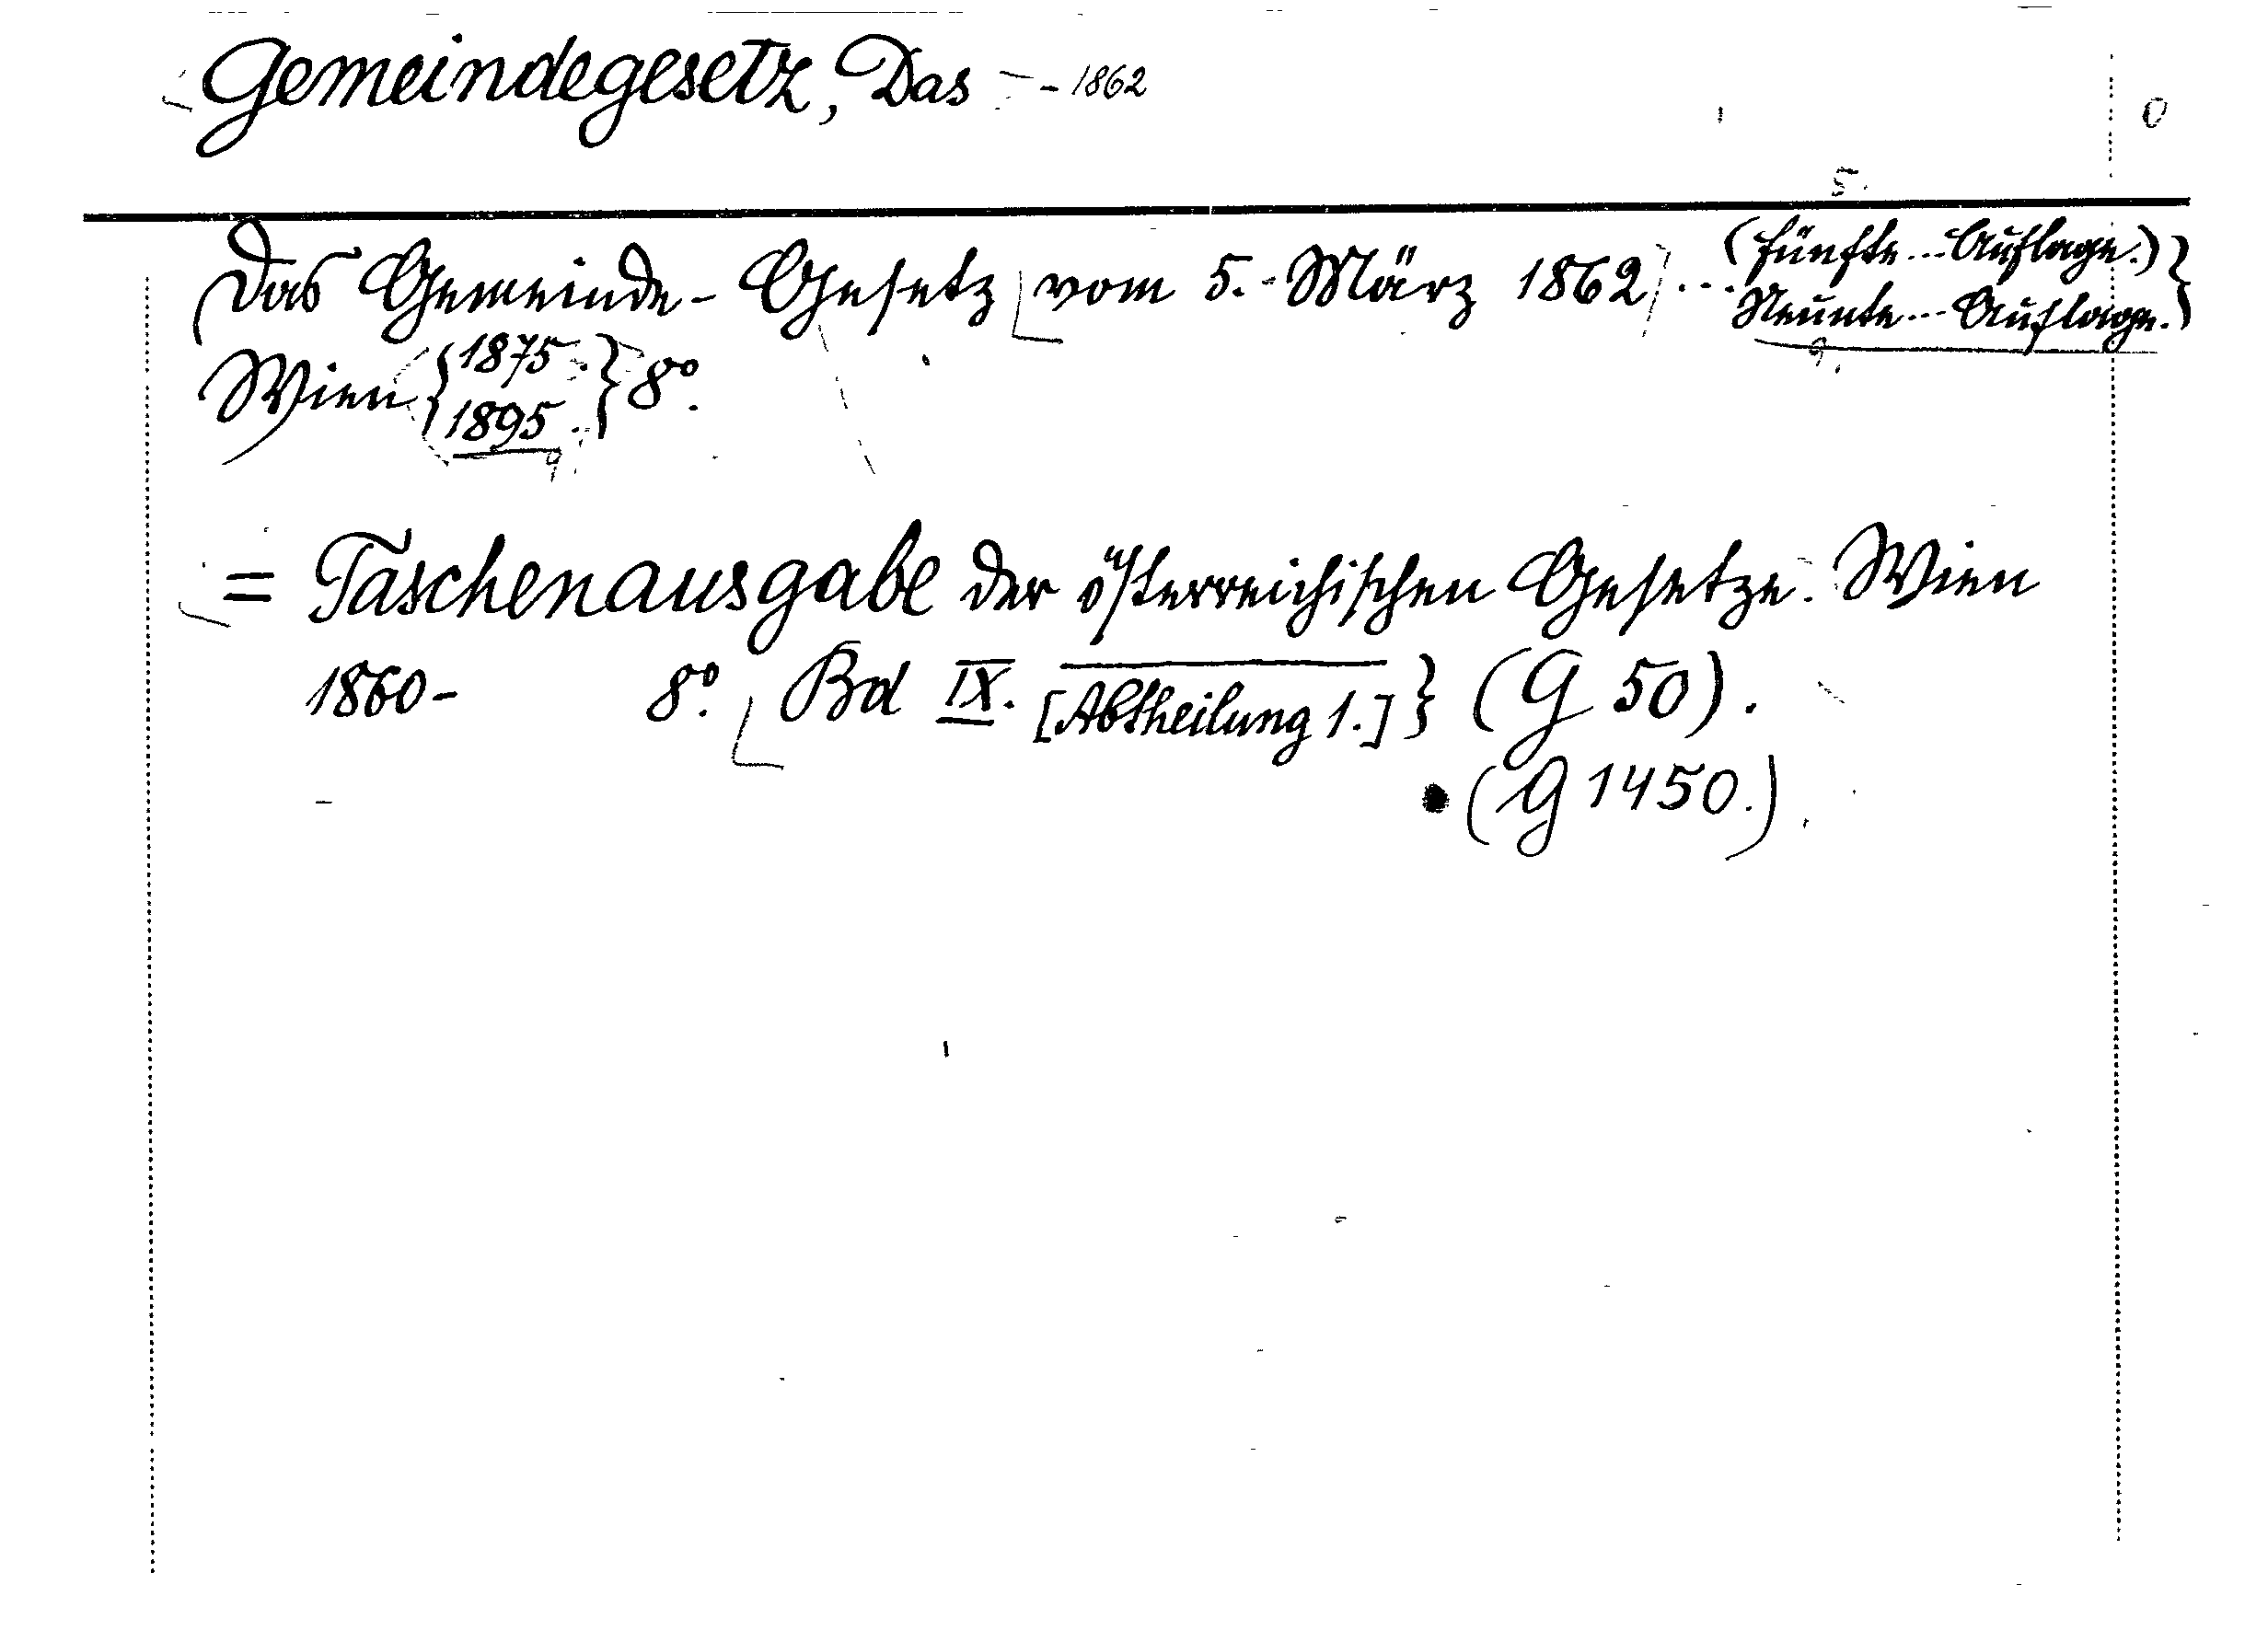 Gemeindegesetz, Das - 1862
0
5.
Das Gemeinde-Gesetz vom 5. März 1862 ... (fünfte ... Auflage.)
Neunte ... Auflage.
9.
Wien { 1875. } 8°.
1895.
9.
= Taschenausgabe der österreichischen Gesetze. Wien
1860- 8°. Bd IX. [Abtheilung 1.] } (G 50).
(G 1450.)